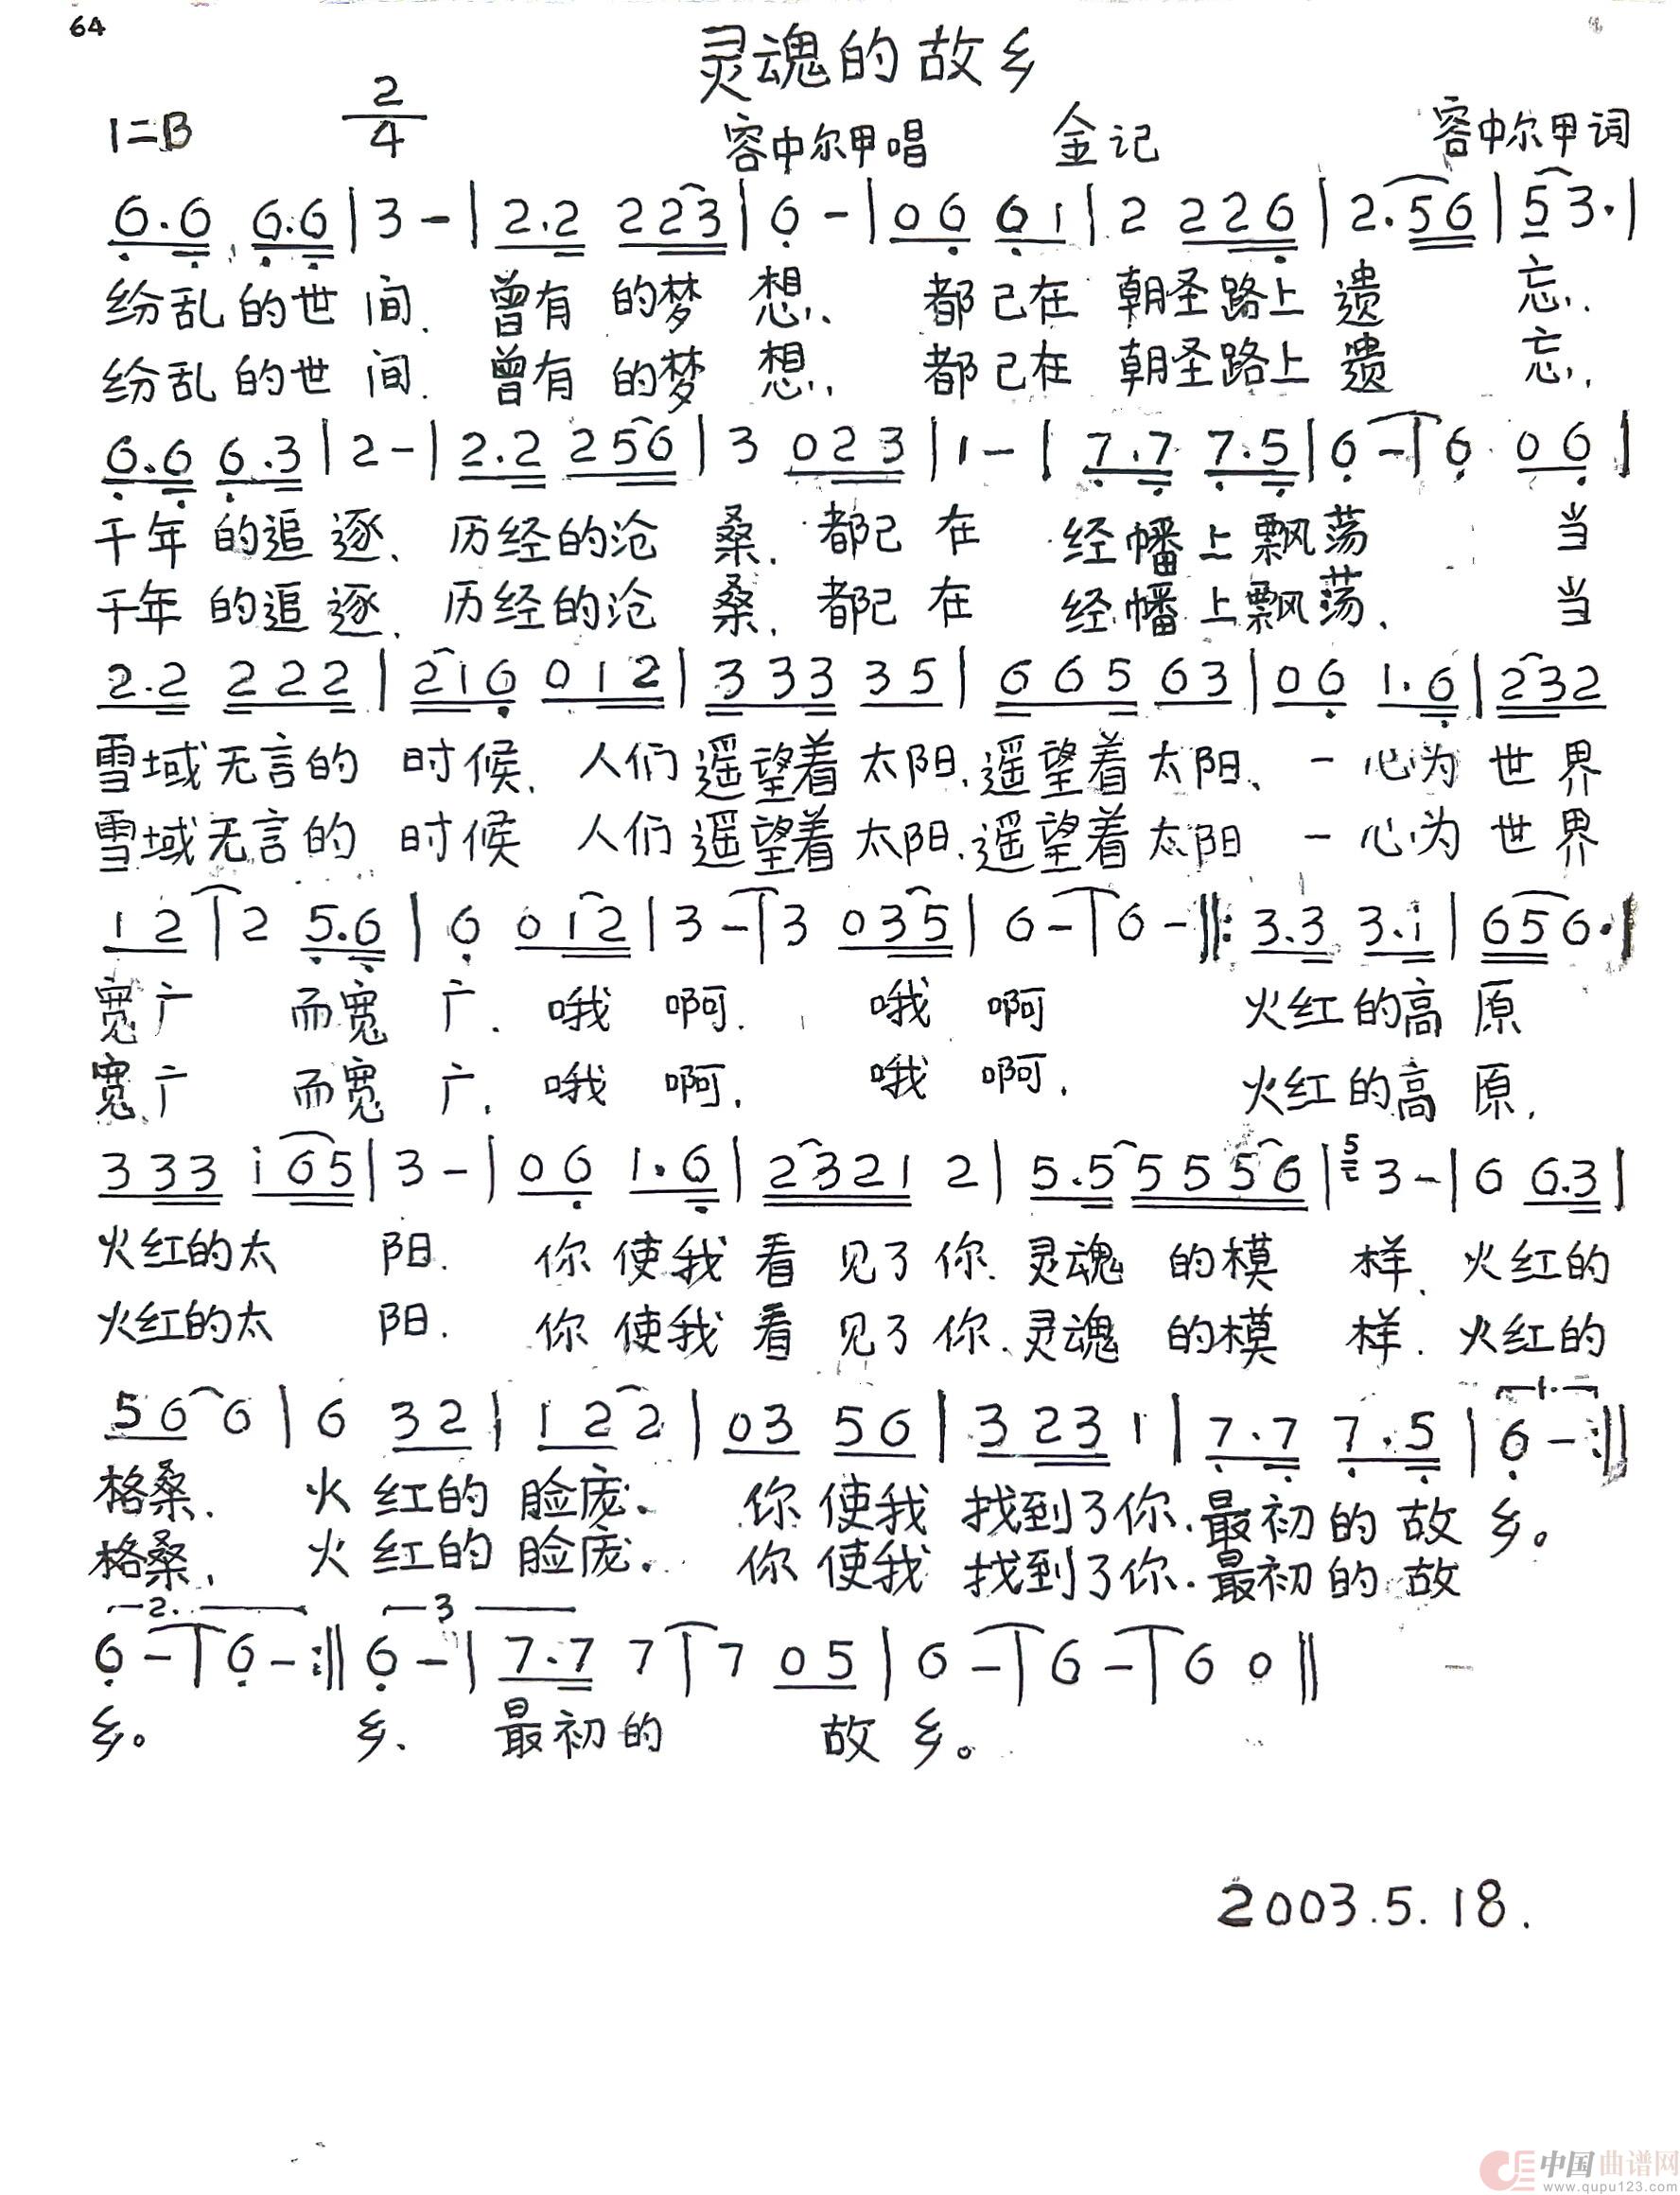 64
灵魂的故乡
1=B 2/4 容中尔甲唱 金记 容中尔甲词
6.6 6.6 | 3 - | 2.2 223 | 6 - | 06 61 | 2 226 | 2.56 | 53. |
纷乱的世间. 曾有的梦想, 都己在朝圣路上遗忘,
纷乱的世间. 曾有的梦想, 都己在朝圣路上遗忘,
6.6 6.3 | 2 - | 2.2 256 | 3 023 | 1 - | 7.7 7.5 | 6 - | 6 06 |
千年的追逐、历经的沧桑. 都己在经幡上飘荡 当
千年的追逐. 历经的沧桑. 都己在经幡上飘荡. 当
2.2 222 | 216 012 | 333 35 | 665 63 | 06 1.6 | 232
雪域无言的时候. 人们遥望着太阳,遥望着太阳、一心为世界
雪域无言的时候 人们遥望着太阳,遥望着太阳 一心为世界
12 | 2 5.6 | 6 012 | 3 - | 3 035 | 6 - | 6 - ‖: 3.3 3.i | 656. |
宽广 而宽广. 哦啊. 哦啊 火红的高原
宽广 而宽广. 哦啊. 哦啊. 火红的高原,
333 i65 | 3 - | 06 1.6 | 2321 2 | 5.5 5556 | 5 3 - | 6 6.3 |
火红的太阳. 你使我看见了你.灵魂的模样. 火红的
火红的太阳. 你使我看见了你.灵魂的模样. 火红的
1.
56 6 | 6 32 | 12 2 | 03 56 | 323 1 | 7.7 7.5 | 6 - :‖
格桑. 火红的脸庞. 你使我找到了你.最初的故乡。
格桑, 火红的脸庞. 你使我找到了你.最初的故
2. 3
6 - | 6 - :‖ 6 - | 7.7 7 | 7 05 | 6 - | 6 - | 6 0 ‖
乡。 乡、最初的故乡。
2003.5.18.
中国曲谱网
www.qupu123.com